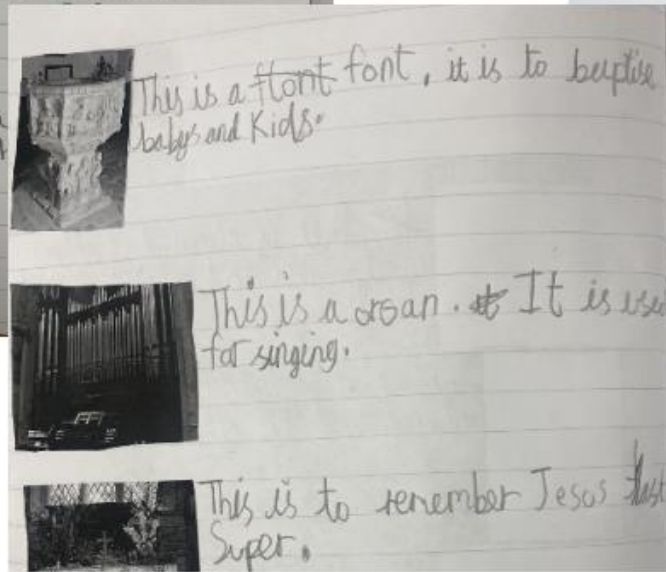 This is a flont font, it is to beuptise
babys and Kids.
This is a organ. It It is use
for singing.
This is to renember Jesus last
Super.